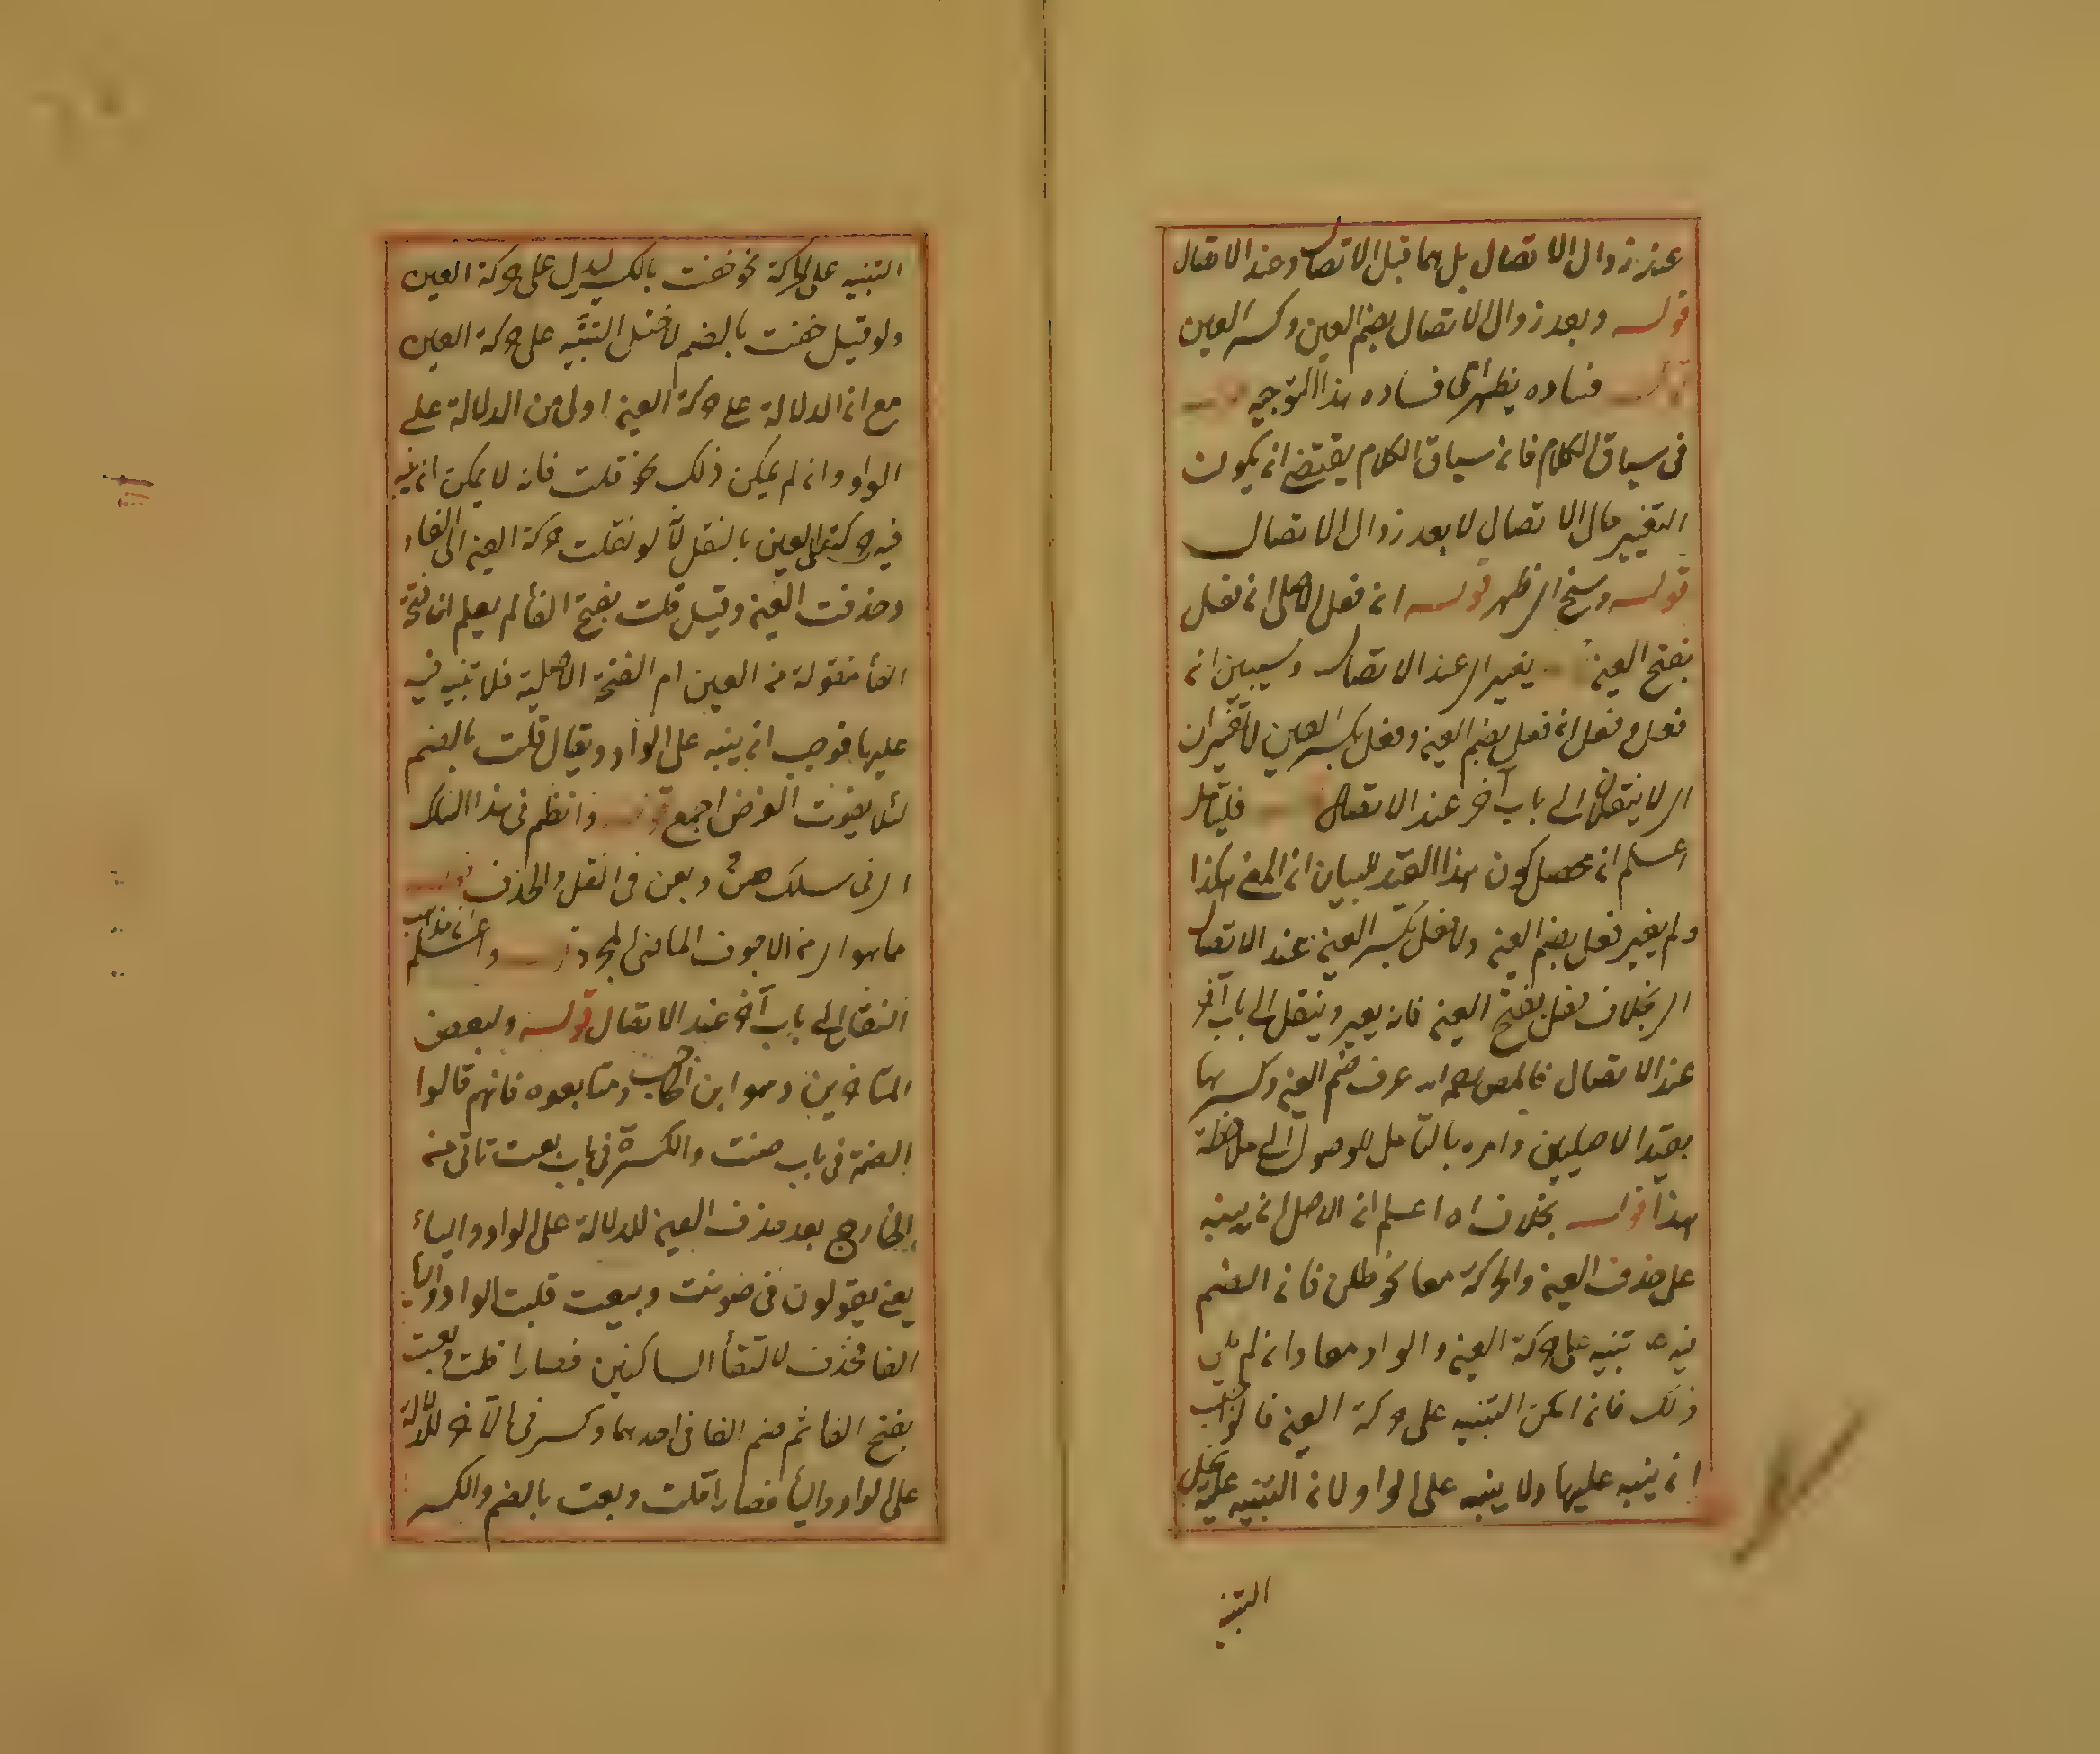 عند زوال الاتصال بل هما قبل الاتصال وعند الاتصال
قوله وبعد زوال الاتصال بضم العين وكسر العين
فساده يظهر اى فساده هذا التوجيه
فى سياق الكلام فان سياق الكلام يقتضى ان يكون
التغيير حال الاتصال لا بعد زوال الاتصال
قوله وسنح اى ظهر قوله ان فعل الاصلى ان فعل
بفتح العين يغير اى عند الاتصال وسيبين ان
فعل و فعل ان فعل بضم العين وفعل بكسر العين لا تغيران
اى لا ينتقلان الى باب آخر عند الاتصال فليتامل
اعلم ان محصل كون هذا القيد للبيان ان المعنى هكذا
ولم يغير فعل بضم العين ولا فعل بكسر العين عند الاتصال
اى بخلاف فعل بفتح العين فانه يغير وينتقل الى باب آخر
عند الاتصال فالمص رحمه الله عرف ضم العين وكسرها
بقيد الاصليين وامره بالتامل للوصول الى ملاحظة
هذا قوله بخلاف اه اعلم ان الاصل ان ينبه
على حذف العين والحركة معا نحو طلن فان الضم
فيه تنبيه على حركة العين والواو معا وان لم يكن
ذلك فان امكن التنبيه على حركة العين فالواجب
ان ينبه عليها ولا ينبه على الواو لان التنبيه عليه يخل
التنبيه
التنبيه على الحركة نحو خفت بالكسر ليدل على حركة العين
ولو قيل خفت بالضم لاختل التنبيه على حركة العين
مع ان الدلالة على حركة العين اولى من الدلالة على
الواو وان لم يمكن ذلك نحو قلت فانه لا يمكن ان ينبه
فيه على حركة العين بالنقل لانه لو نقلت حركة العين الى الفاء
وحذفت العين وقيل قلت بفتح الفا لم يعلم ان فتحة
الفأ منقولة من العين ام الفتحة الاصلية فلا تنبيه فيه
عليها فوجب ان ينبه على الواو ويقال قلت بالضم
لئلا يفوت الغرض اجمع قوله وانظم فى هذا السلك
اى فى سلك صن وبعن فى النقل والحذف قوله
ما هو اى من الاجوف الماضى المجرد واعلم ان مذاهب
النقل الى باب آخر عند الاتصال قوله ولبعض
المتاخرين وهو ابن الحاجب ومتابعوه فانهم قالوا
الضمة فى باب صنت والكسرة فى باب بعت تاتى من
الخارج بعد حذف العين للدلالة على الواو والياء
يعنى يقولون فى صونت وبيعت قلبت الواو والياء
الفا فحذف لالتقأ الساكنين فصارا قلت وبعت
بفتح الفا ثم ضم الفا فى احدهما وكسر فى الآخر للدلالة
على الواو واليأ فصارا قلت وبعت بالضم والكسر